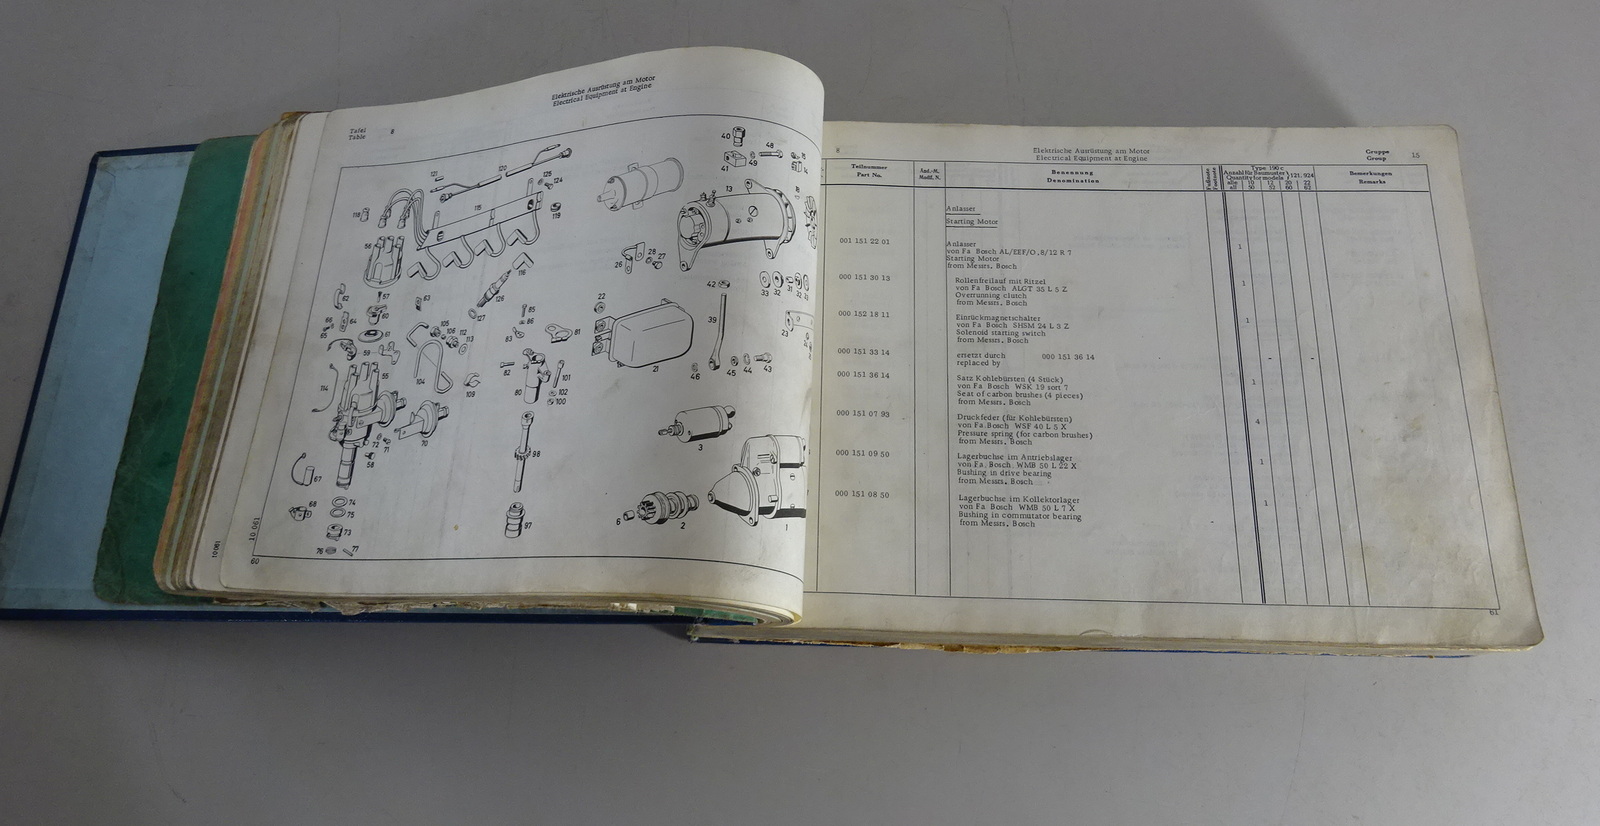 Elektrische Ausrüstung am Motor
Electrical Equipment at Engine
Tafel 8
Table
121
122
125
124
119
118
115
56
116
126
127
62
57
63
60
66
65
64
61
59
105
106
112
113
55
104
109
114
72
71
70
58
67
68
74
75
73
76
77
85
86
83
81
82
80
101
102
100
98
97
40
41
49
48
13
26
28
27
22
21
42
39
33
32
31
23
46
45
44
43
3
6
2
1
10 061
10 061
60
8
Elektrische Ausrüstung am Motor
Electrical Equipment at Engine
Gruppe 15
Group
Teilnummer
Part No.
Änd.-M.
Modif. N.
Benennung
Denomination
Fußnote
Footnote
Type 190 c
Anzahl für Baumuster } 121.924
Quantity for models
Bemerkungen
Remarks
Anlasser
Starting Motor
001 151 22 01 Anlasser 1
von Fa Bosch AL/EEF/O,8/12 R 7
Starting Motor
from Messrs. Bosch
000 151 30 13 Rollenfreilauf mit Ritzel 1
von Fa Bosch ALGT 35 L 5 Z
Overrunning clutch
from Messrs. Bosch
000 152 18 11 Einrückmagnetschalter 1
von Fa Bosch SHSM 24 L 3 Z
Solenoid starting switch
from Messrs. Bosch
000 151 33 14 ersetzt durch 000 151 36 14 - -
replaced by
000 151 36 14 Satz Kohlebürsten (4 Stück) 1
von Fa Bosch WSK 19 sort 7
Seat of carbon brushes (4 pieces)
from Messrs. Bosch
000 151 07 93 Druckfeder (für Kohlebürsten) 4
von Fa Bosch WSF 40 L 5 X
Pressure spring (for carbon brushes)
from Messrs. Bosch
000 151 09 50 Lagerbuchse im Antriebslager 1
von Fa Bosch WMB 50 L 22 X
Bushing in drive bearing
from Messrs. Bosch
000 151 08 50 Lagerbuchse im Kollektorlager 1
von Fa Bosch WMB 50 L 7 X
Bushing in commutator bearing
from Messrs. Bosch
61